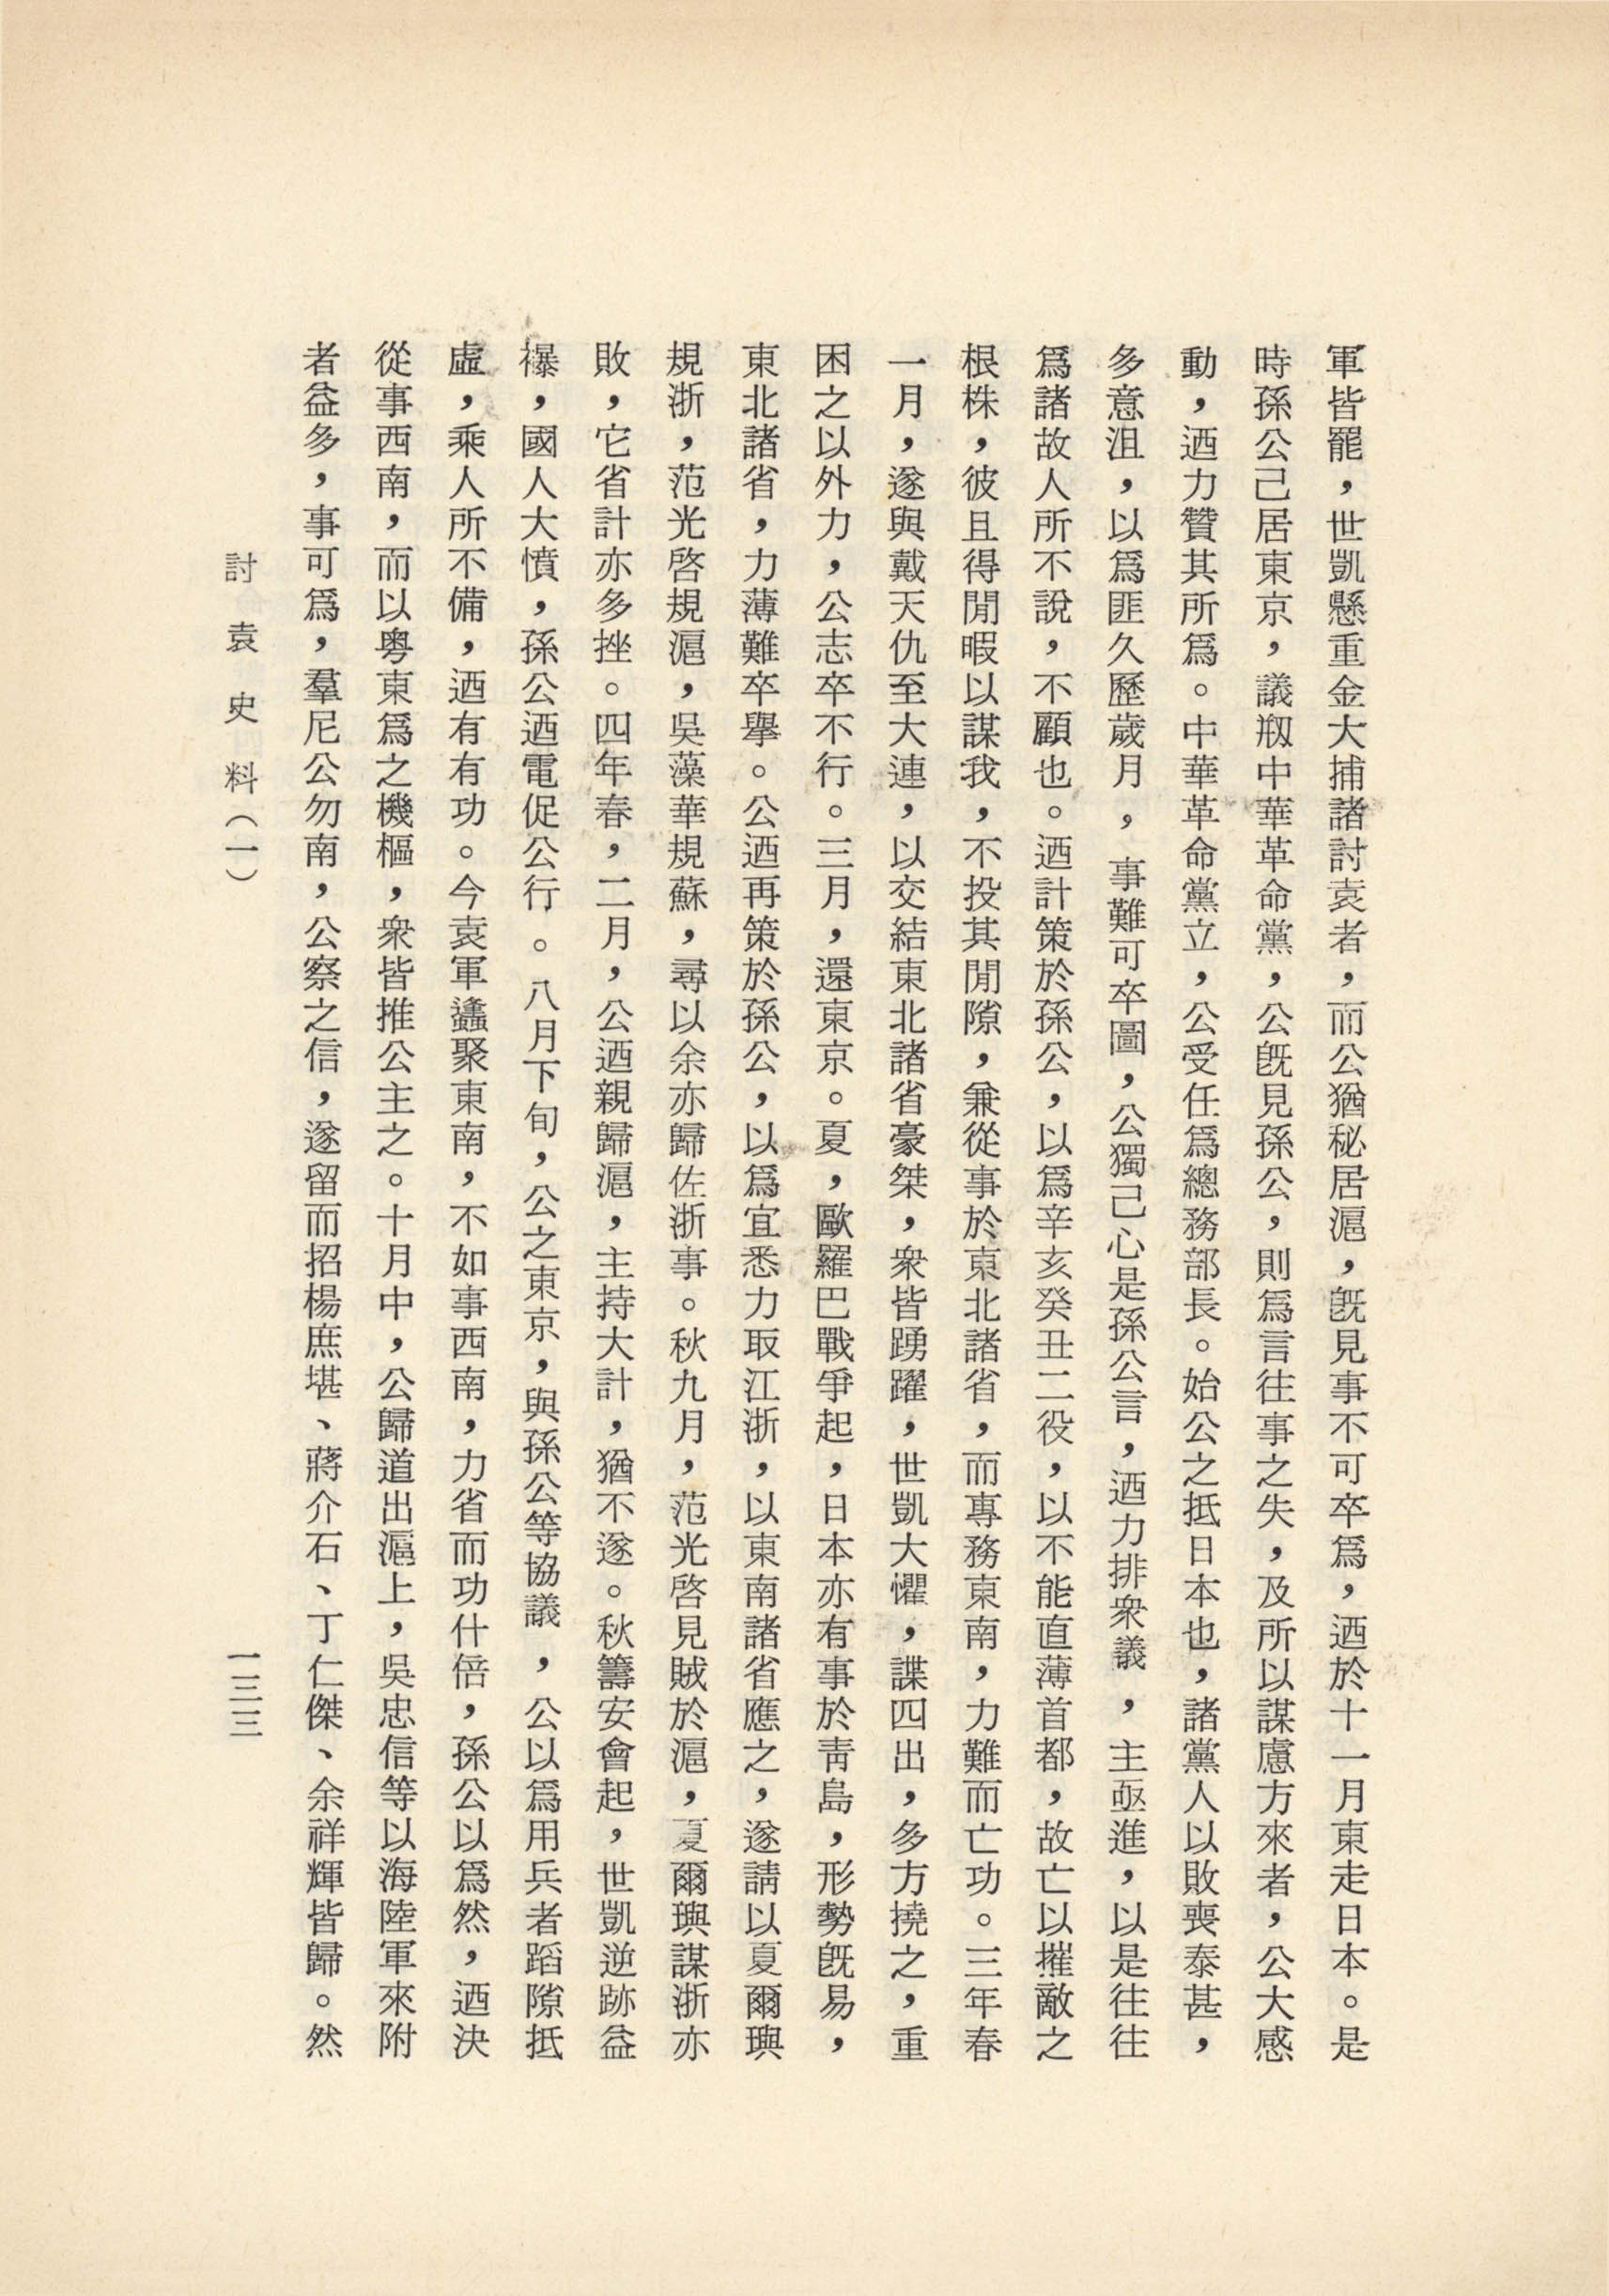 軍皆罷，世凱懸重金大捕諸討袁者，而公猶秘居滬，旣見事不可卒爲，迺於十一月東走日本。是
時孫公己居東京，議剏中華革命黨，公旣見孫公，則爲言往事之失，及所以謀慮方來者，公大感
動，迺力贊其所爲。中華革命黨立，公受任爲總務部長。始公之抵日本也，諸黨人以敗喪泰甚，
多意沮，以爲匪久歷歲月，事難可卒圖，公獨己心是孫公言，迺力排衆議，主亟進，以是往往
爲諸故人所不說，不顧也。迺計策於孫公，以爲辛亥癸丑二役，以不能直薄首都，故亡以摧敵之
根株，彼且得閒暇以謀我，不投其閒隙，兼從事於東北諸省，而專務東南，力難而亡功。三年春
一月，遂與戴天仇至大連，以交結東北諸省豪桀，衆皆踴躍，世凱大懼，諜四出，多方撓之，重
困之以外力，公志卒不行。三月，還東京。夏，歐羅巴戰爭起，日本亦有事於靑島，形勢旣易，
東北諸省，力薄難卒舉。公迺再策於孫公，以爲宜悉力取江浙，以東南諸省應之，遂請以夏爾璵
規浙，范光啓規滬，吳藻華規蘇，尋以余亦歸佐浙事。秋九月，范光啓見賊於滬，夏爾璵謀浙亦
敗，它省計亦多挫。四年春，二月，公迺親歸滬，主持大計，猶不遂。秋籌安會起，世凱逆跡益
襮，國人大憤，孫公迺電促公行。八月下旬，公之東京，與孫公等協議，公以爲用兵者蹈隙抵
虛，乘人所不備，迺有有功。今袁軍蠭聚東南，不如事西南，力省而功什倍，孫公以爲然，迺決
從事西南，而以粵東爲之機樞，衆皆推公主之。十月中，公歸道出滬上，吳忠信等以海陸軍來附
者益多，事可爲，羣尼公勿南，公察之信，遂留而招楊庶堪、蔣介石、丁仁傑、余祥輝皆歸。然
討袁史料（一）
一三三